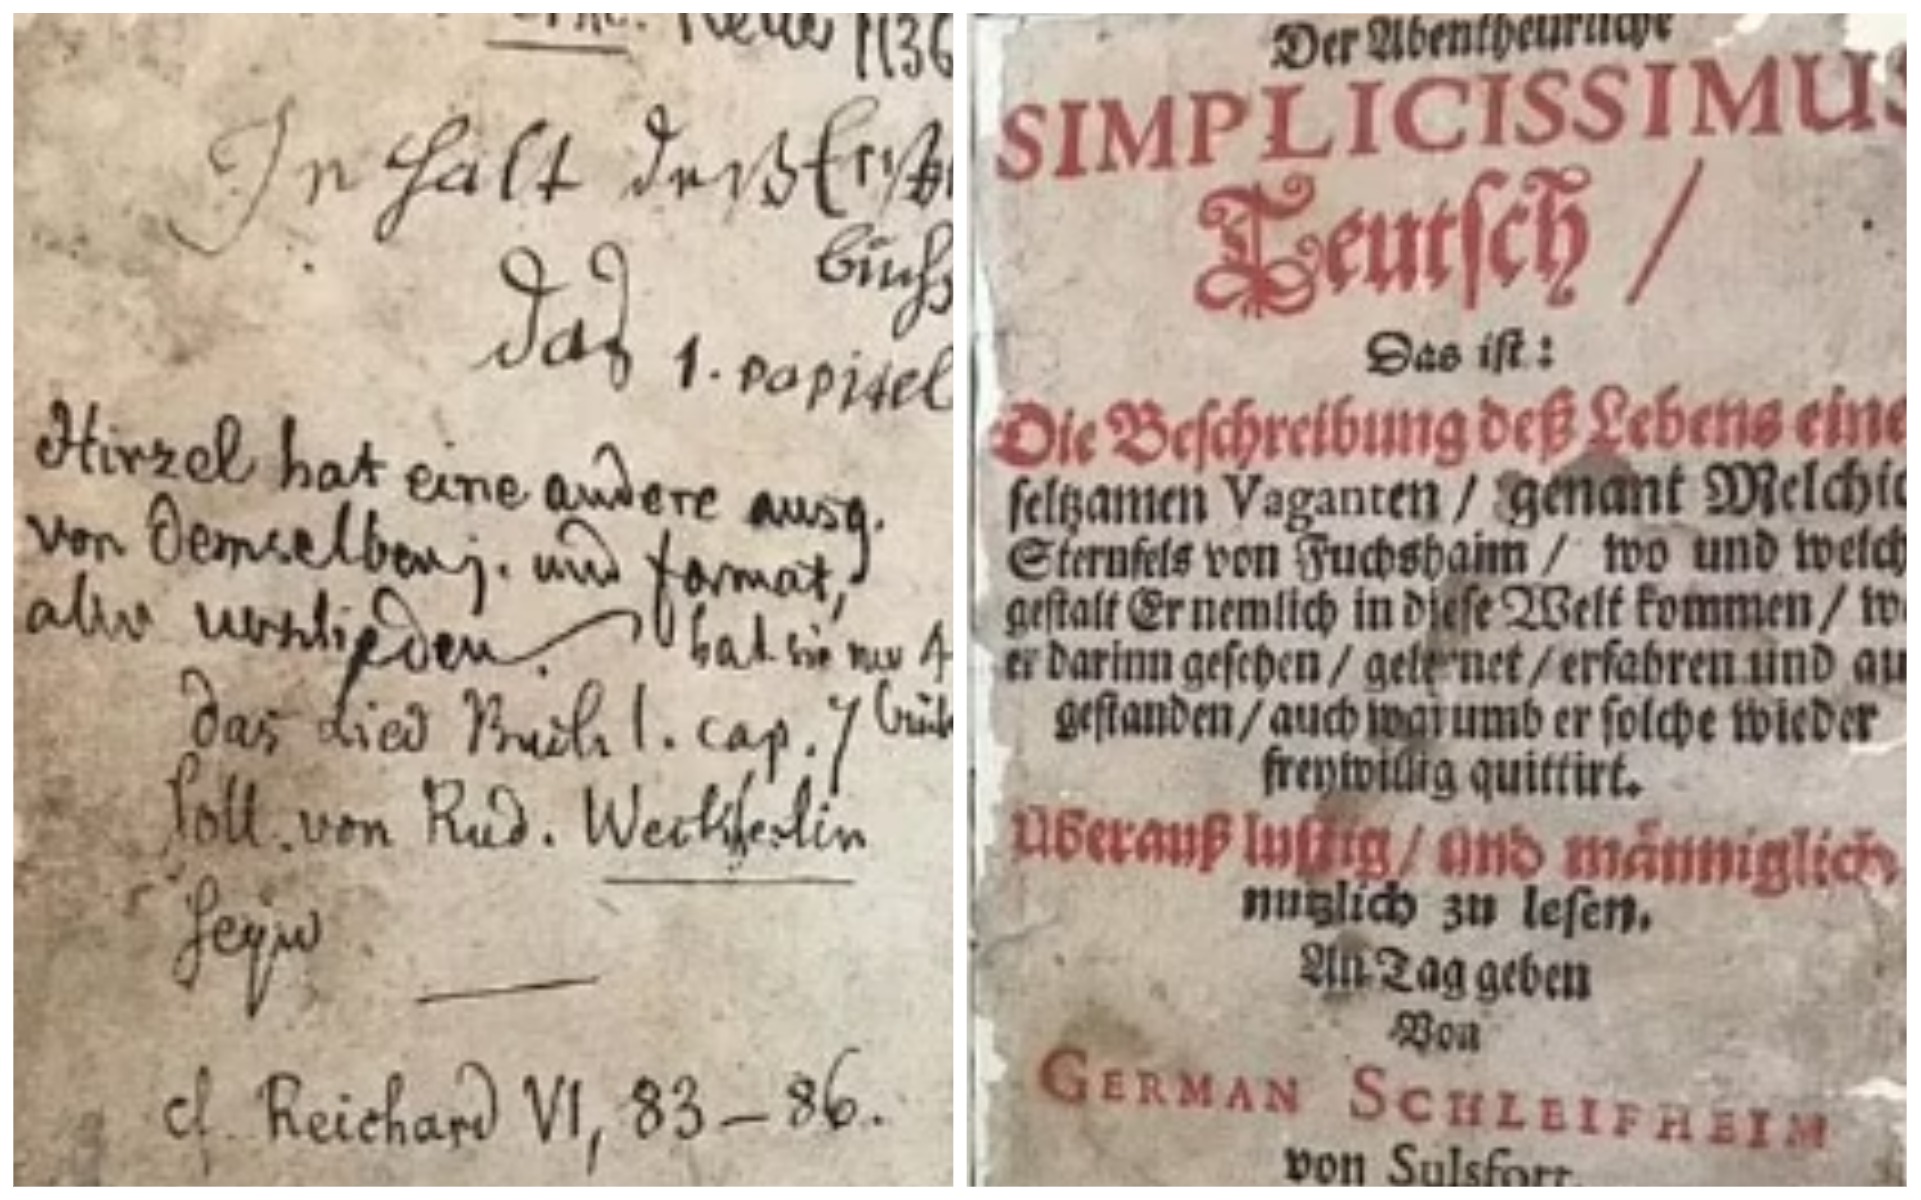 1136
Inhalt deß Erst
buchs
Das 1. Capitel
Hirzel hat eine andere ausg.
von demselben j. und format,
aber verschieden. hat sie nur 4
das Lied Buch 1. cap. 7
soll von Rud. Weckherlin
seyn
cf. Reichard VI, 83–86.
Der Abentheurliche
SIMPLICISSIMUS
Teutſch /
Das iſt:
Die Beſchreibung deß Lebens eine
ſeltzamen Vaganten / genant Melchio
Sternfels von Fuchshaim / wo und welch
geſtalt Er nemlich in dieſe Welt kommen / w
er darinn geſehen / gelernet / erfahren und au
geſtanden / auch warumb er ſolche wieder
freywillig quittirt.
Überauß luſtig / und männiglich
nutzlich zu leſen.
An Tag geben
Von
GERMAN SCHLEIFHEIM
von Sulsfort.